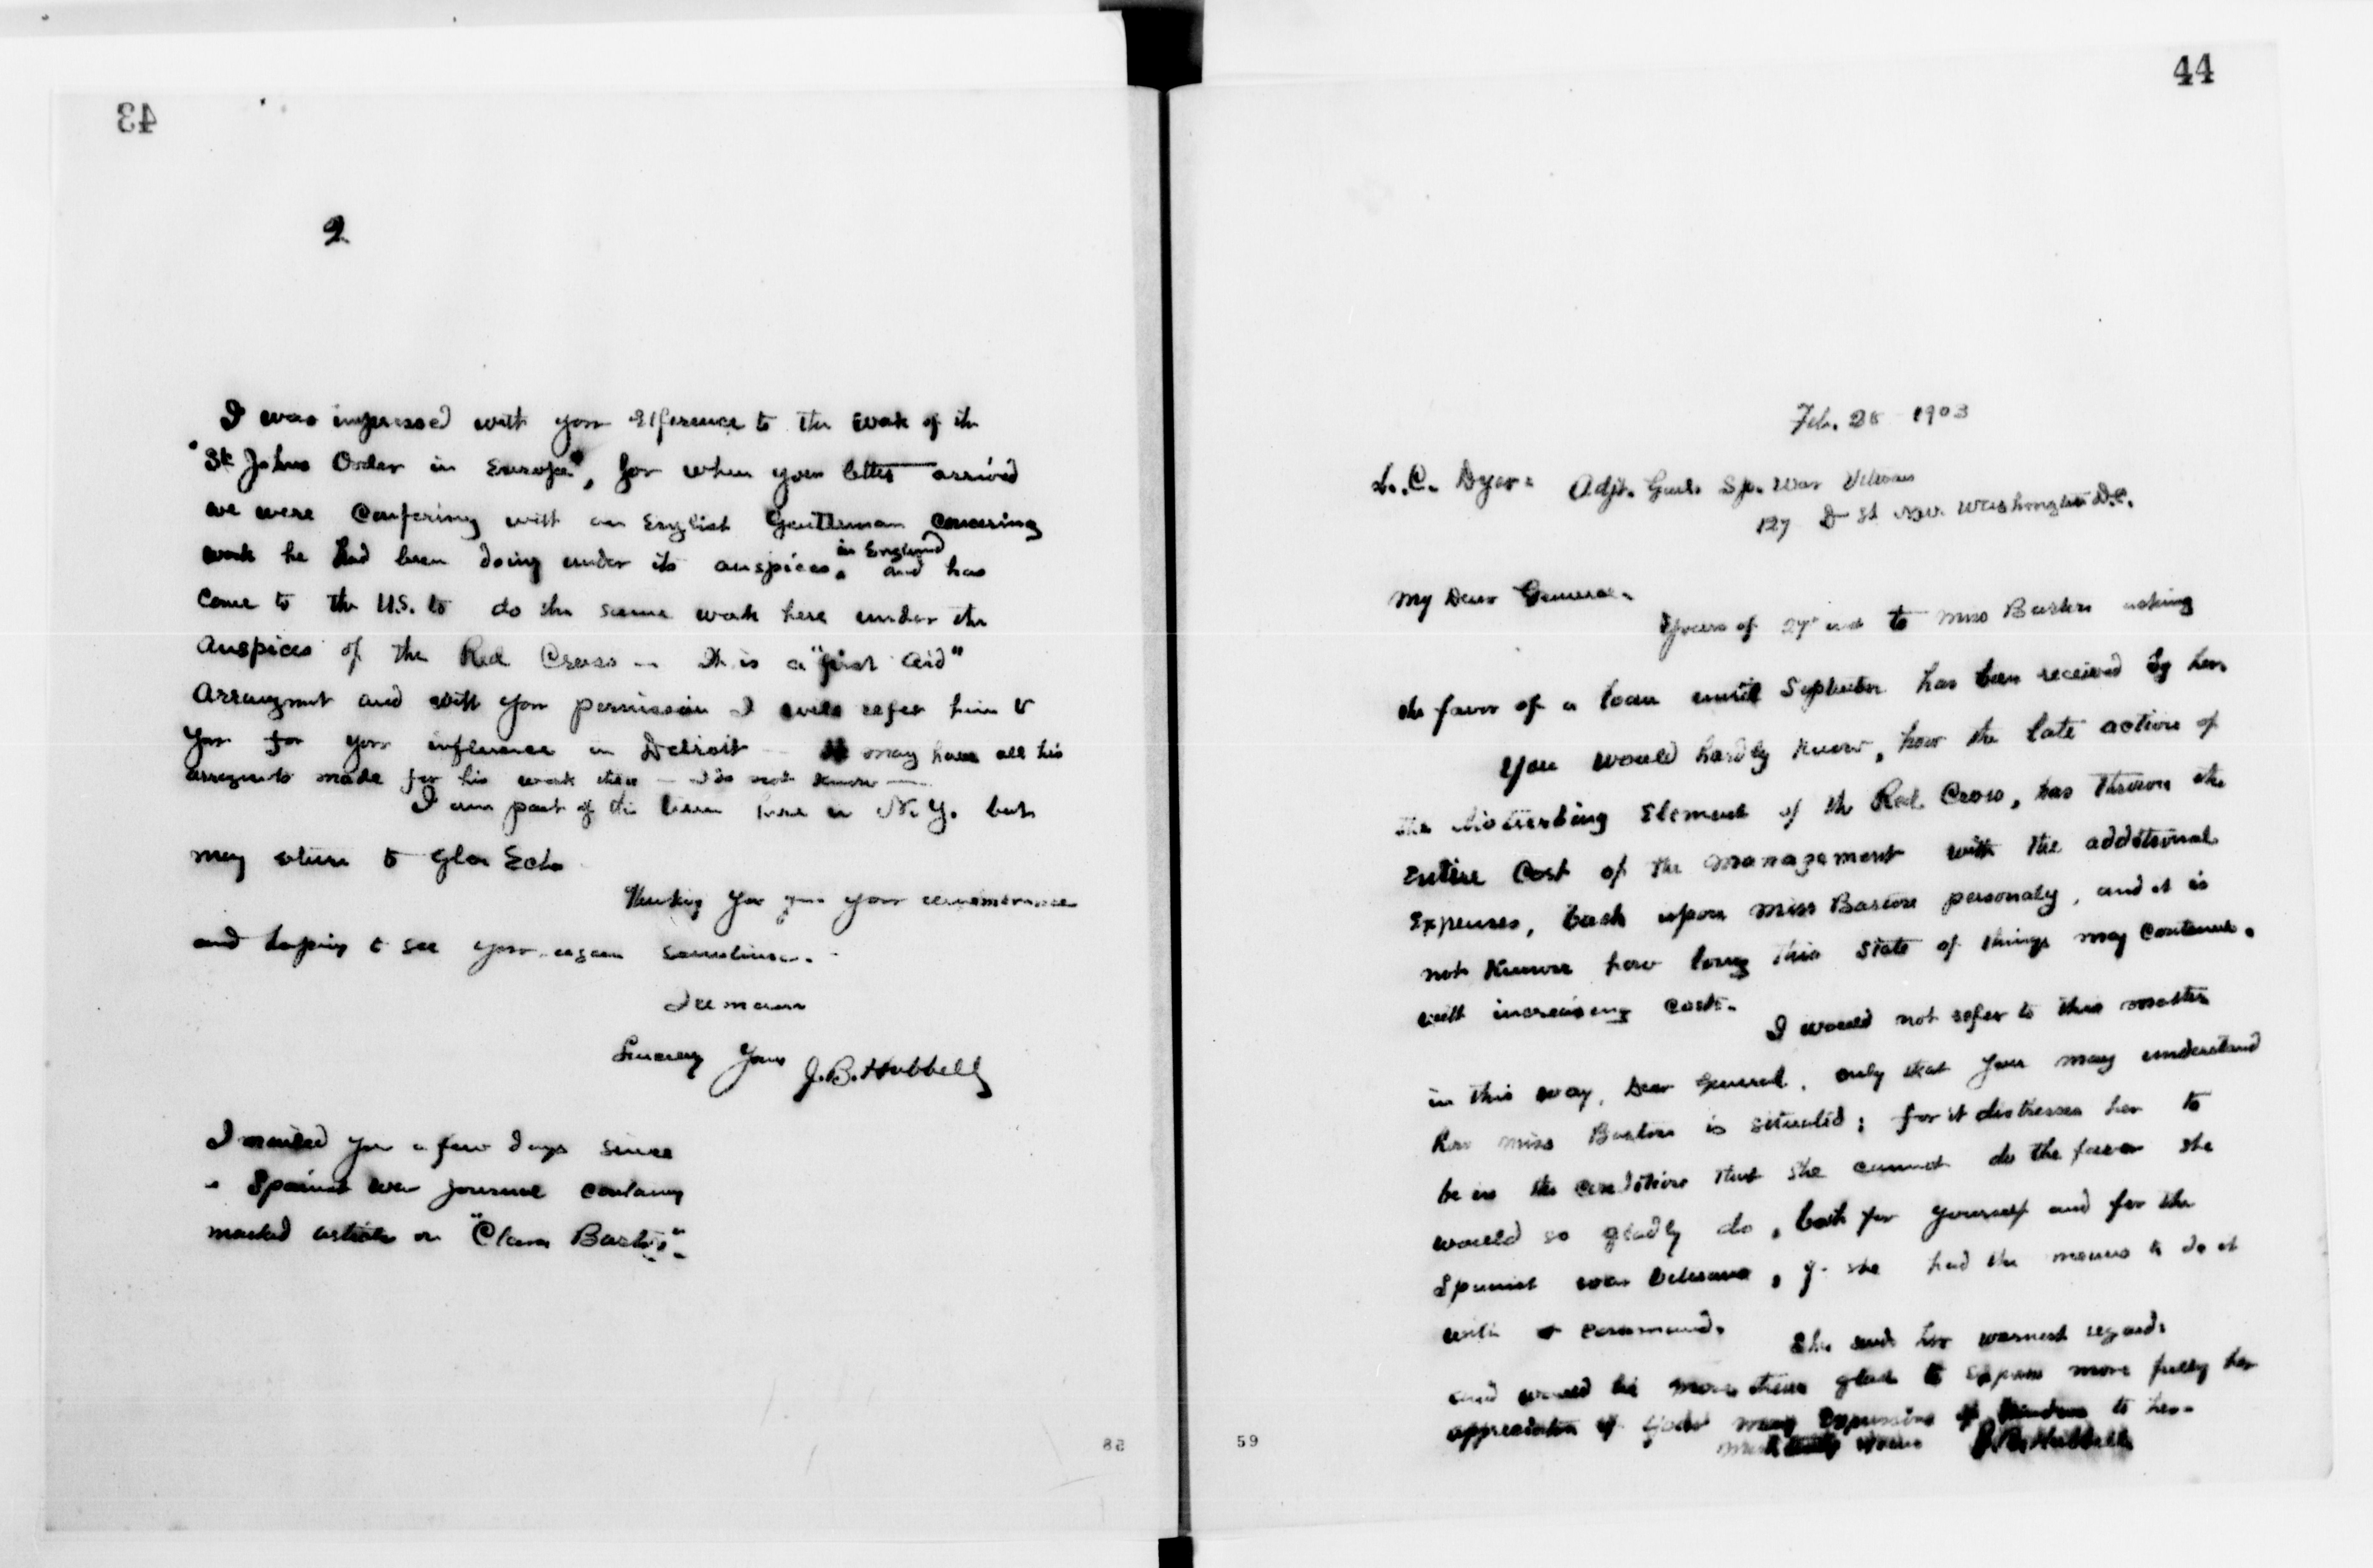 43
2
I was impressed with your reference to the work of the
"St Johns Order in Europe", for when your letter arrived
we were confering with an English Gentleman concering
work he had been doing under its auspices, in England and has
come to the U.S. to do the same work here under the
auspices of the Red Cross — It is a "first aid"
arrangmt and with your permission I will refer him to
you for your influence in Detroit — He may have all his
arrangmts made for his work there — I do not know —
I am part of the time here in N.Y. but
may return to Glen Echo
Thanking you for your rememberance
and hoping to see you again sometime.
I remain
Sincerely Yours J.B. Hubbell
I mailed you a few days since
a Spanish War journal containg
marked article on "Clara Barton".
58
44
Feb. 28 1903
L.C. Dyer: Adjt. Genl. Sp. War Veterans
127 D St N.W. Washington D.C.
My Dear General.
Yours of 27" inst to Miss Barton asking
the favor of a loan until September has been received by her.
You would hardly know, how the late action of
the disturbing Element of the Red Cross, has thrown the
Entire Cost of the management with the additional
Expenses, back upon Miss Barton personaly, and it is
not known how long this state of things may continue.
with increasing costs.
I would not refer to this matter
in this way, Dear General, only that you may understand
how Miss Barton is situated; for it distresses her to
be in the condition that she cannot do the favor she
would so gladly do, both for yourself and for the
Spanish war Veterans, if she had the means to do it
with at command.
She sends her warmest regards
and would be more than glad to express more fully her
appreciation of your many Expressions of kindness to her.
Most truly Yours J.B. Hubbell
59